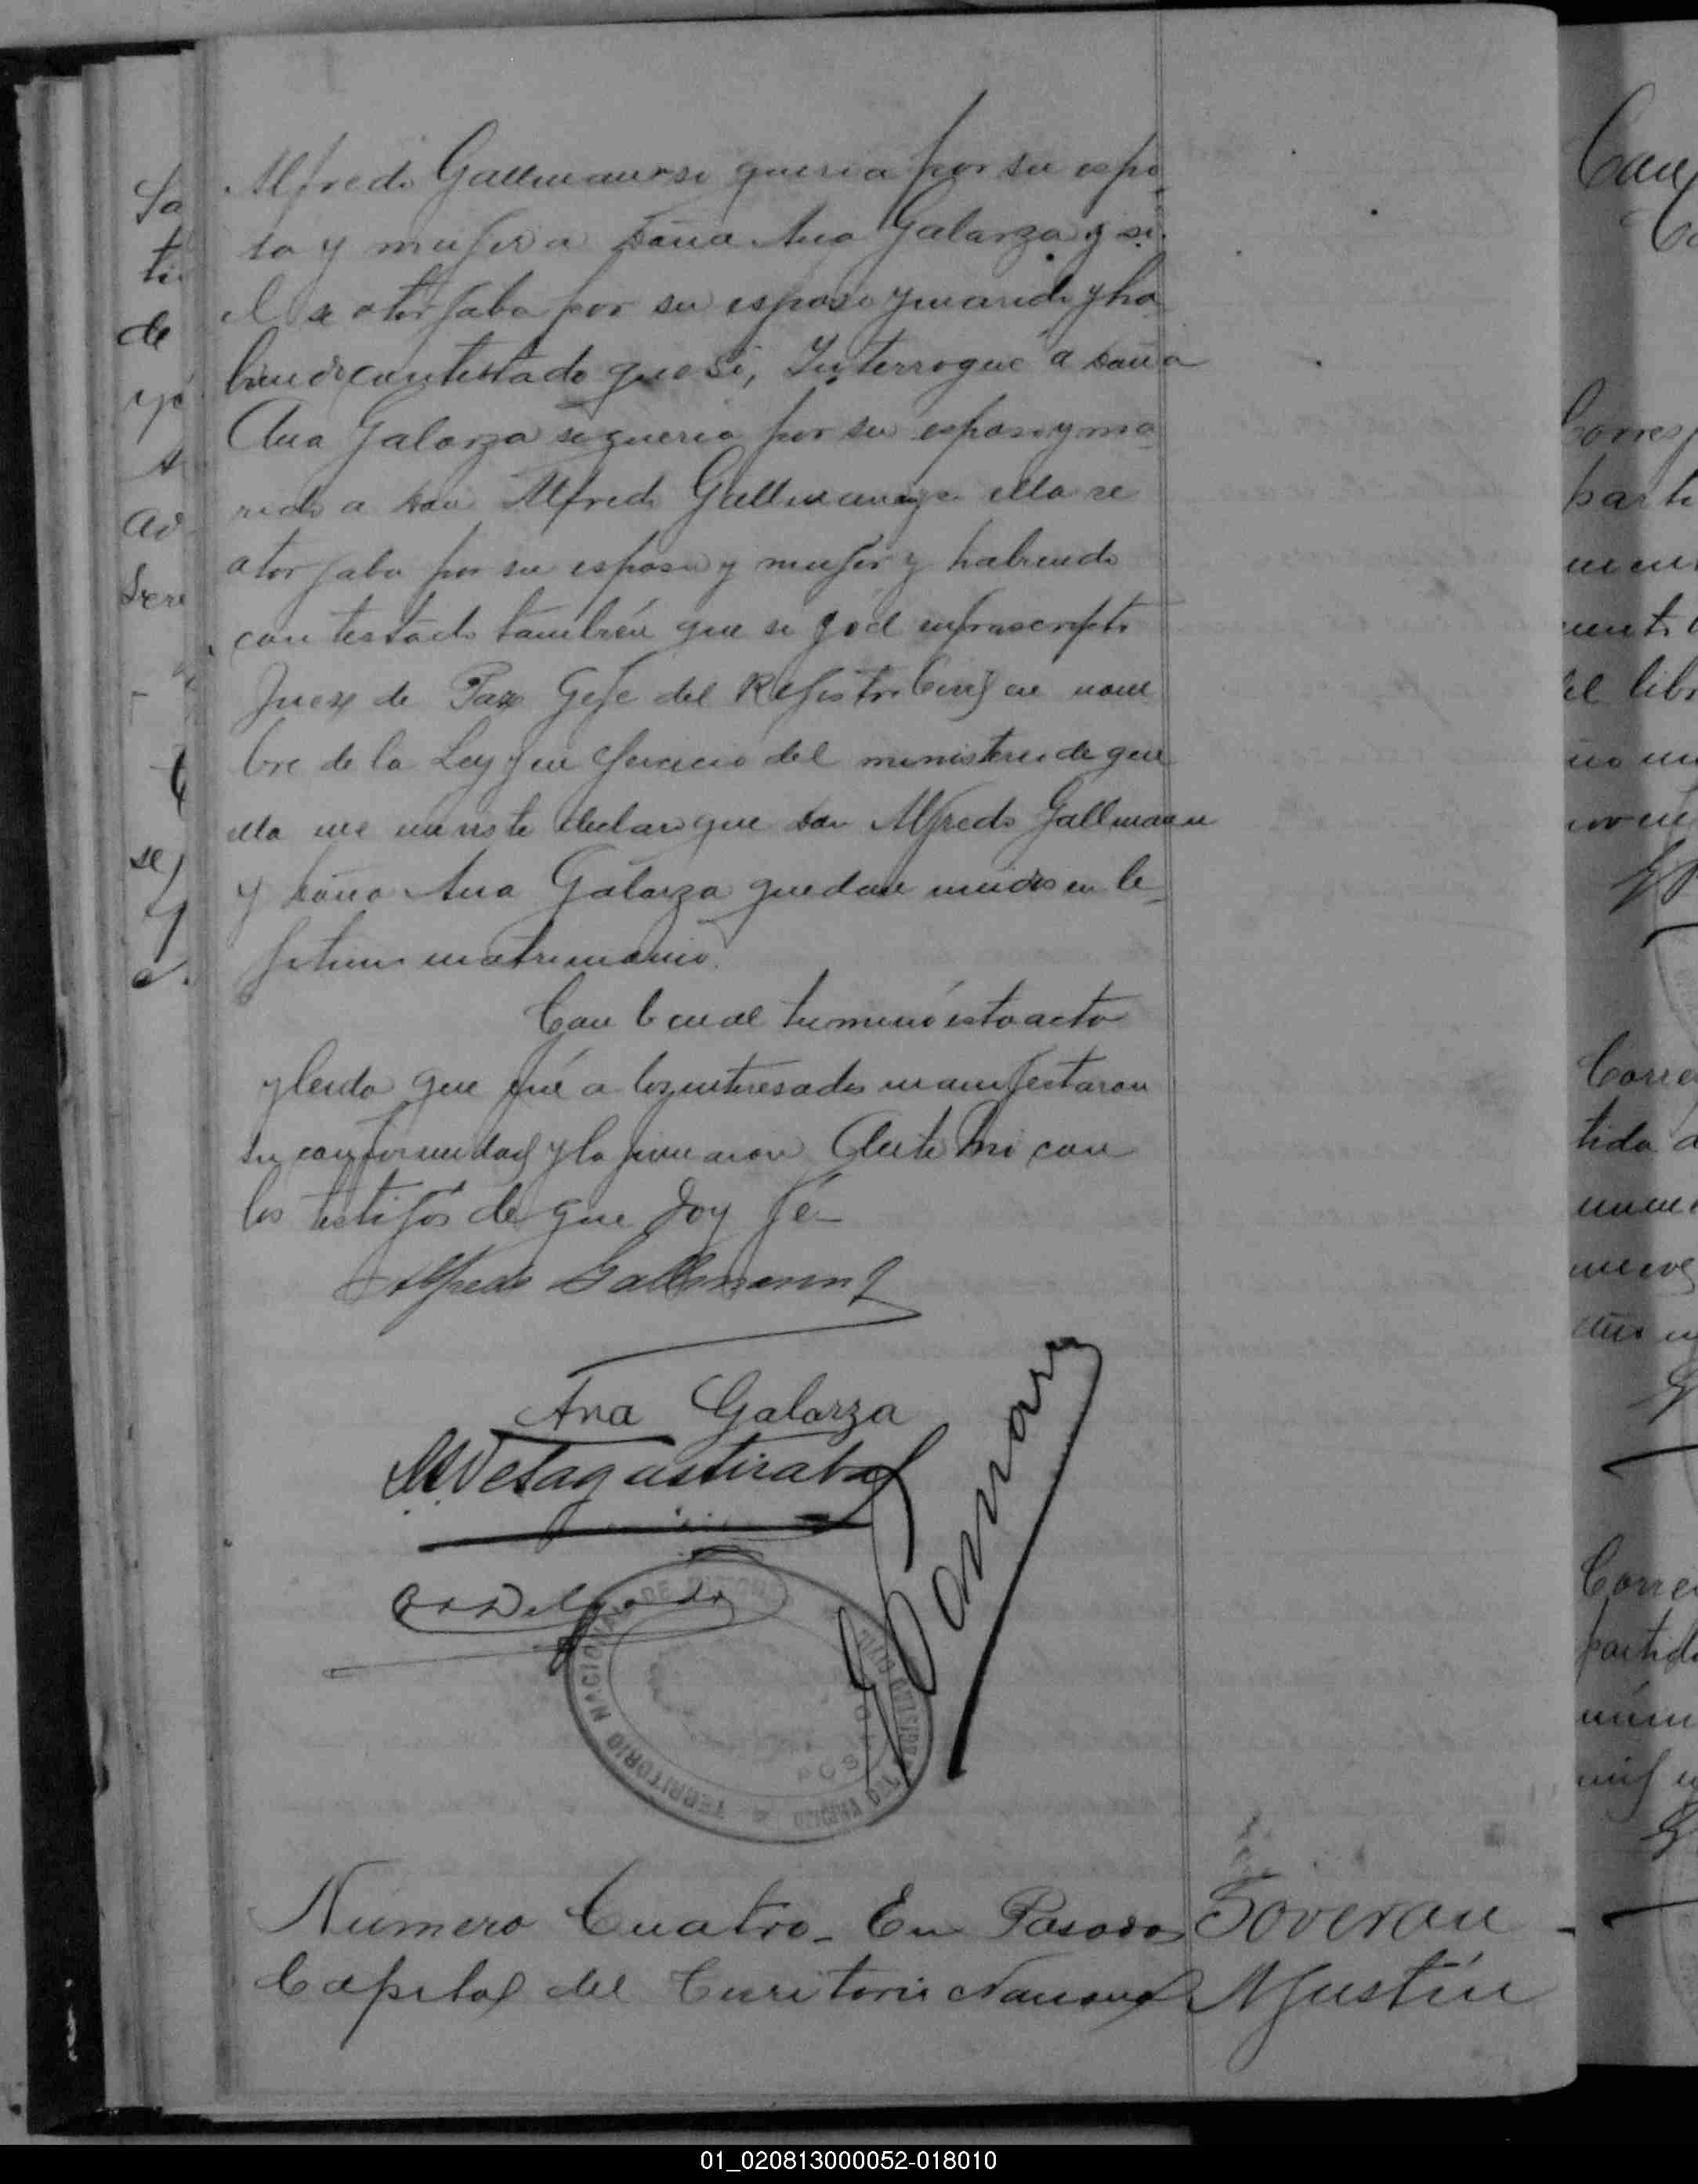 Alfredo Gallmann si queria por su espo
sa y mujer a doña Ana Galarza y si
el se otorgaba por su esposo y marido y ha
biendo contestado que si, Interrogué a doña
Ana Galarza si queria por su esposo y ma
rido a don Alfredo Gallmann y si ella se
otorgaba por su esposa y mujer y habiendo
contestado también que si yo el infrascripto
Juez de Paz Gefe del Registro Civil en nom
bre de la Ley y en ejercicio del ministerio de que
ella me inviste declaro que don Alfredo Gallmann
y doña Ana Galarza quedan unidos en le
gitimo matrimonio.
Con lo cual terminó esta acta
y leida que fué a los interesados manifestaron
su conformidad y la firmaron Ante Mi con
los testigos de que Doy fé
Alfredo Gallmann
Ana Galarza
TERRITORIO NACIONAL DE MISIONES
POSADAS
Número Cuatro - En Posadas
Capital del Territorio Nacional
Soveran
Agustin
Corres
parti
del libr
Corre
tida
Corre
partid
núm
01_020813000052-018010